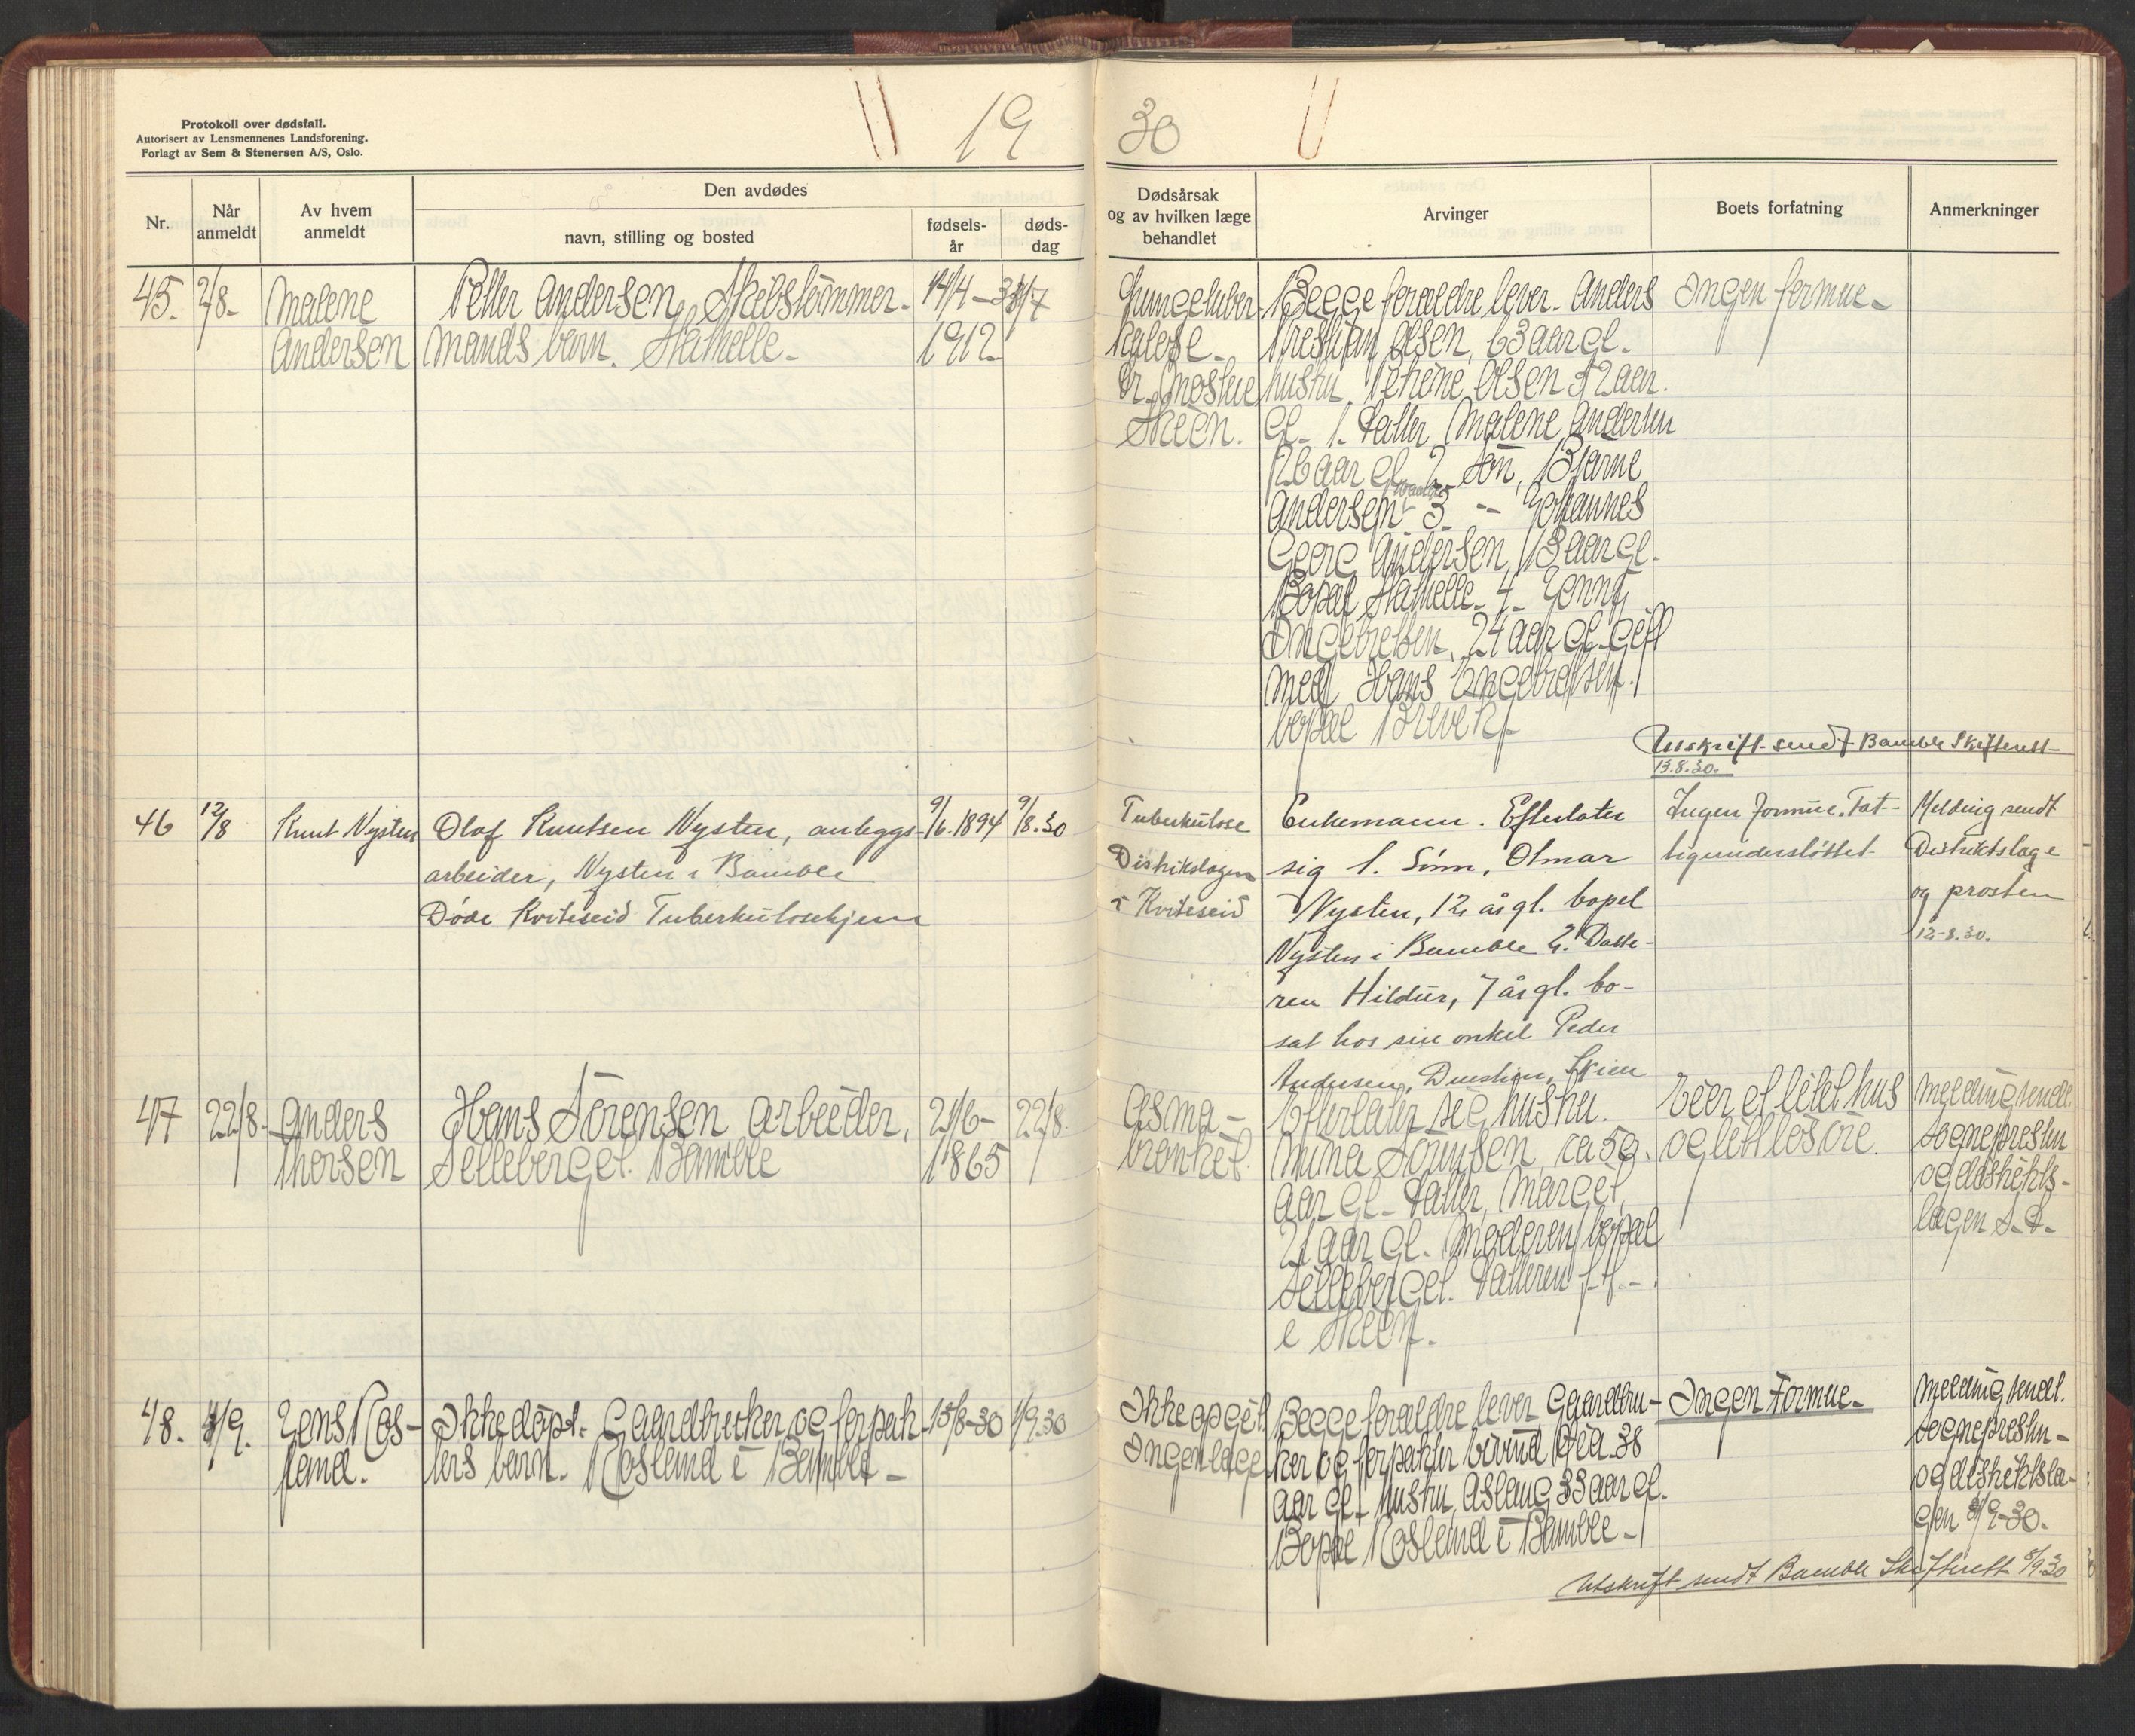 Protokoll over dødsfall.
Autorisert av Lensmennenes Landsforening.
Forlagt av Sem & Stenersen A/S, Oslo.
19
30
Nr.
Når
anmeldt
Av hvem
anmeldt
Den avdødes
navn, stilling og bosted
fødsels-
år
døds-
dag
Dødsårsak
og av hvilken læge
behandlet
Arvinger
Boets forfatning
Anmerkninger
45. 2/8- Malene Petter Andersen, Skibstømmer- 14/4- 31/7
Andersen mands barn. Stathelle- 1912-
Lungetuber
kulose-
Dr. Moshue
Skien.
Begge foraldre lever. Anders
Kristian Olsen, 63 aar gl.
hustru Petrine Olsen 52 aar.
gl. 1. datter Malene Andersen
26 aar gl. 2. søn, Bjarne
Andersen 3. -"- Johannes
Georg Andersen, 13 aar gl.
Bopæl Stathelle- 4- Jenny
Ingebretsen, 24 aar gl. gift
med Hans Engebretsen.
bopæl Brevik.
Ingen formue-
Utskrift sendt Bamble Skifterett
13.8.30.
46 12/8 Knut Nysten Olaf Knutsen Nysten, anleggs- 9/6.1894 9/8.30
arbeider, Nysten i Bamble
Døde Kviteseid Tuberkulosehjem
Tuberkulose
Distriktslægen
i Kviteseid
Enkemann. Efterlater
sig 1. Sønn, Olmar
Nysten, 12 år gl. bopel
Nysten i Bamble 2. Datte-
ren Hildur, 7 år gl. bo-
sat hos sin onkel Peder
Andersen, Duestien, Skien
Ingen formue. Fat-
tigunderstøttet
Melding sendt
Distriktslæge
og prosten
12-8.30.
47 22/8. Anders Hans Sørensen arbeider, 21/6- 22/8.
Thorsen Selleberget. Bamble 1865
Asma-
bronkit.
Efterlater seg hustru.
Mina Sørensen, ca 59.
aar gl- datter, Margit,
21 aar gl. Moderen bopæl
Selleberget. datteren f. t.-
i Skien.
Eier et litet hus
og litt løsøre.
Melding sendt
Sognepresten
og distrikts-
lægen S. D.
48. 4/9. Jens Ros- Ikke døpt. Gaardbruker og forpak- 15/8-30 1/9.30
land. ters barn. Rosland i Bamble-
Ikke opgit.
Ingen læge
Begge foraldre lever Gaardbru-
ker og forpakter Eivind 38
aar gl- hustru Aslaug 33 aar gl.
Bopæl Rosland i Bamble-
Ingen Formue-
Melding sendt.
Sognepresten-
og distriktslæ-
gen 4/9-30.
Utskrift sendt Bamble Skifterett 5/9.30